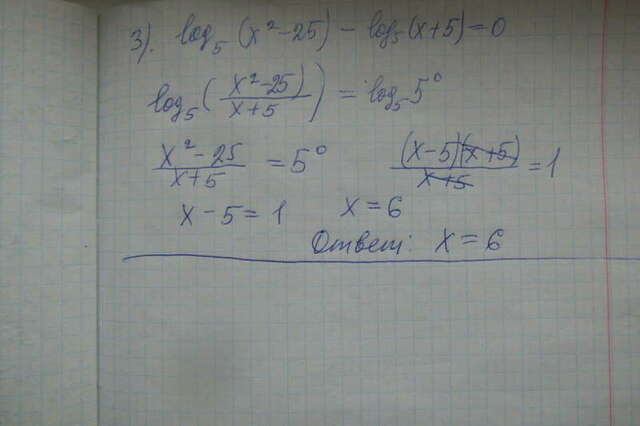 3). log₅(x²-25) - log₅(x+5)=0
log₅((x²-25)/(x+5)) = log₅5⁰
(x²-25)/(x+5) = 5⁰ ((x-5)(x+5))/(x+5) = 1
x-5=1 x=6
Ответ: x=6